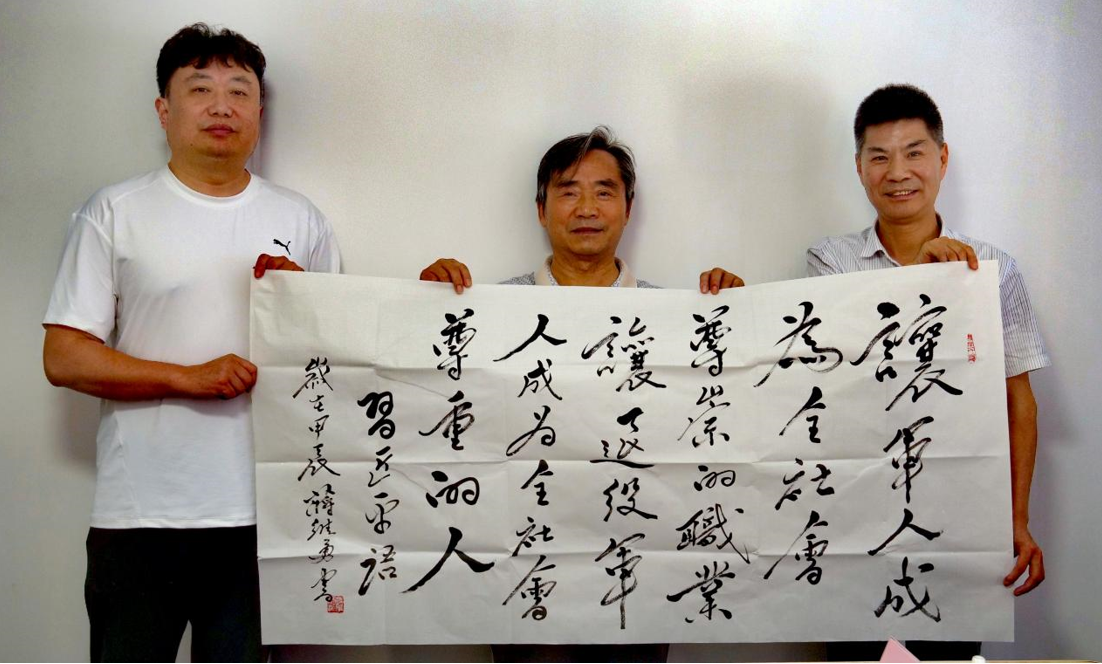 讓軍人成
為全社會
尊崇的職業
讓退役軍
人成为全社會
尊重的人
習近平語
歲在甲辰 蔣继勇書